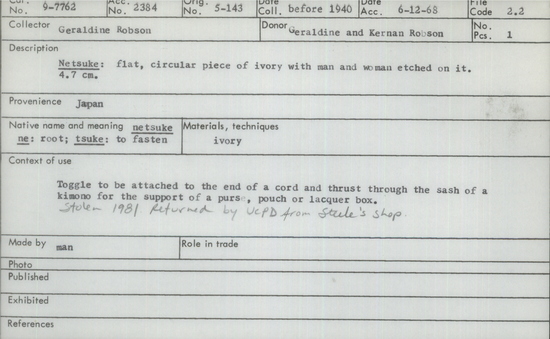 Cat. Acc. Orig. Date Date File
No. 9-7762 No. 2384 No. 5-143 Coll. before 1940 Acc. 6-12-68 Code 2.2
Collector Donor No.
Geraldine Robson Geraldine and Kernan Robson Pcs. 1
Description
Netsuke: flat, circular piece of ivory with man and woman etched on it.
4.7 cm.
Provenience Japan
Native name and meaning netsuke Materials, techniques
ne: root; tsuke: to fasten ivory
Context of use
Toggle to be attached to the end of a cord and thrust through the sash of a
kimono for the support of a purse, pouch or lacquer box.
Stolen 1981 Returned by UCPD from Steele's shop.
Made by man Role in trade
Photo
Published
Exhibited
References